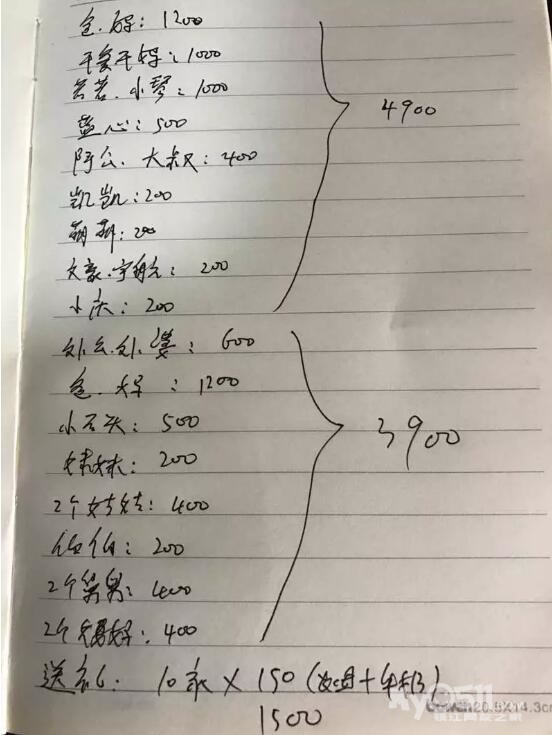 爸.妈：1200
干爹干妈：1000
芸芸.小琴：1000
蓝心：500
阿公.大叔：400
凯凯：200
萌萌：200
文豪.宇航：200
小庆：200
4900
外公.外婆：600
爸.妈：1200
小石头：500
妹妹：200
2个姑姑：400
伯伯：200
2个舅舅：400
2个舅妈：400
3900
送礼：10家×150(烟+牛奶)
1500
20.8X14.3c